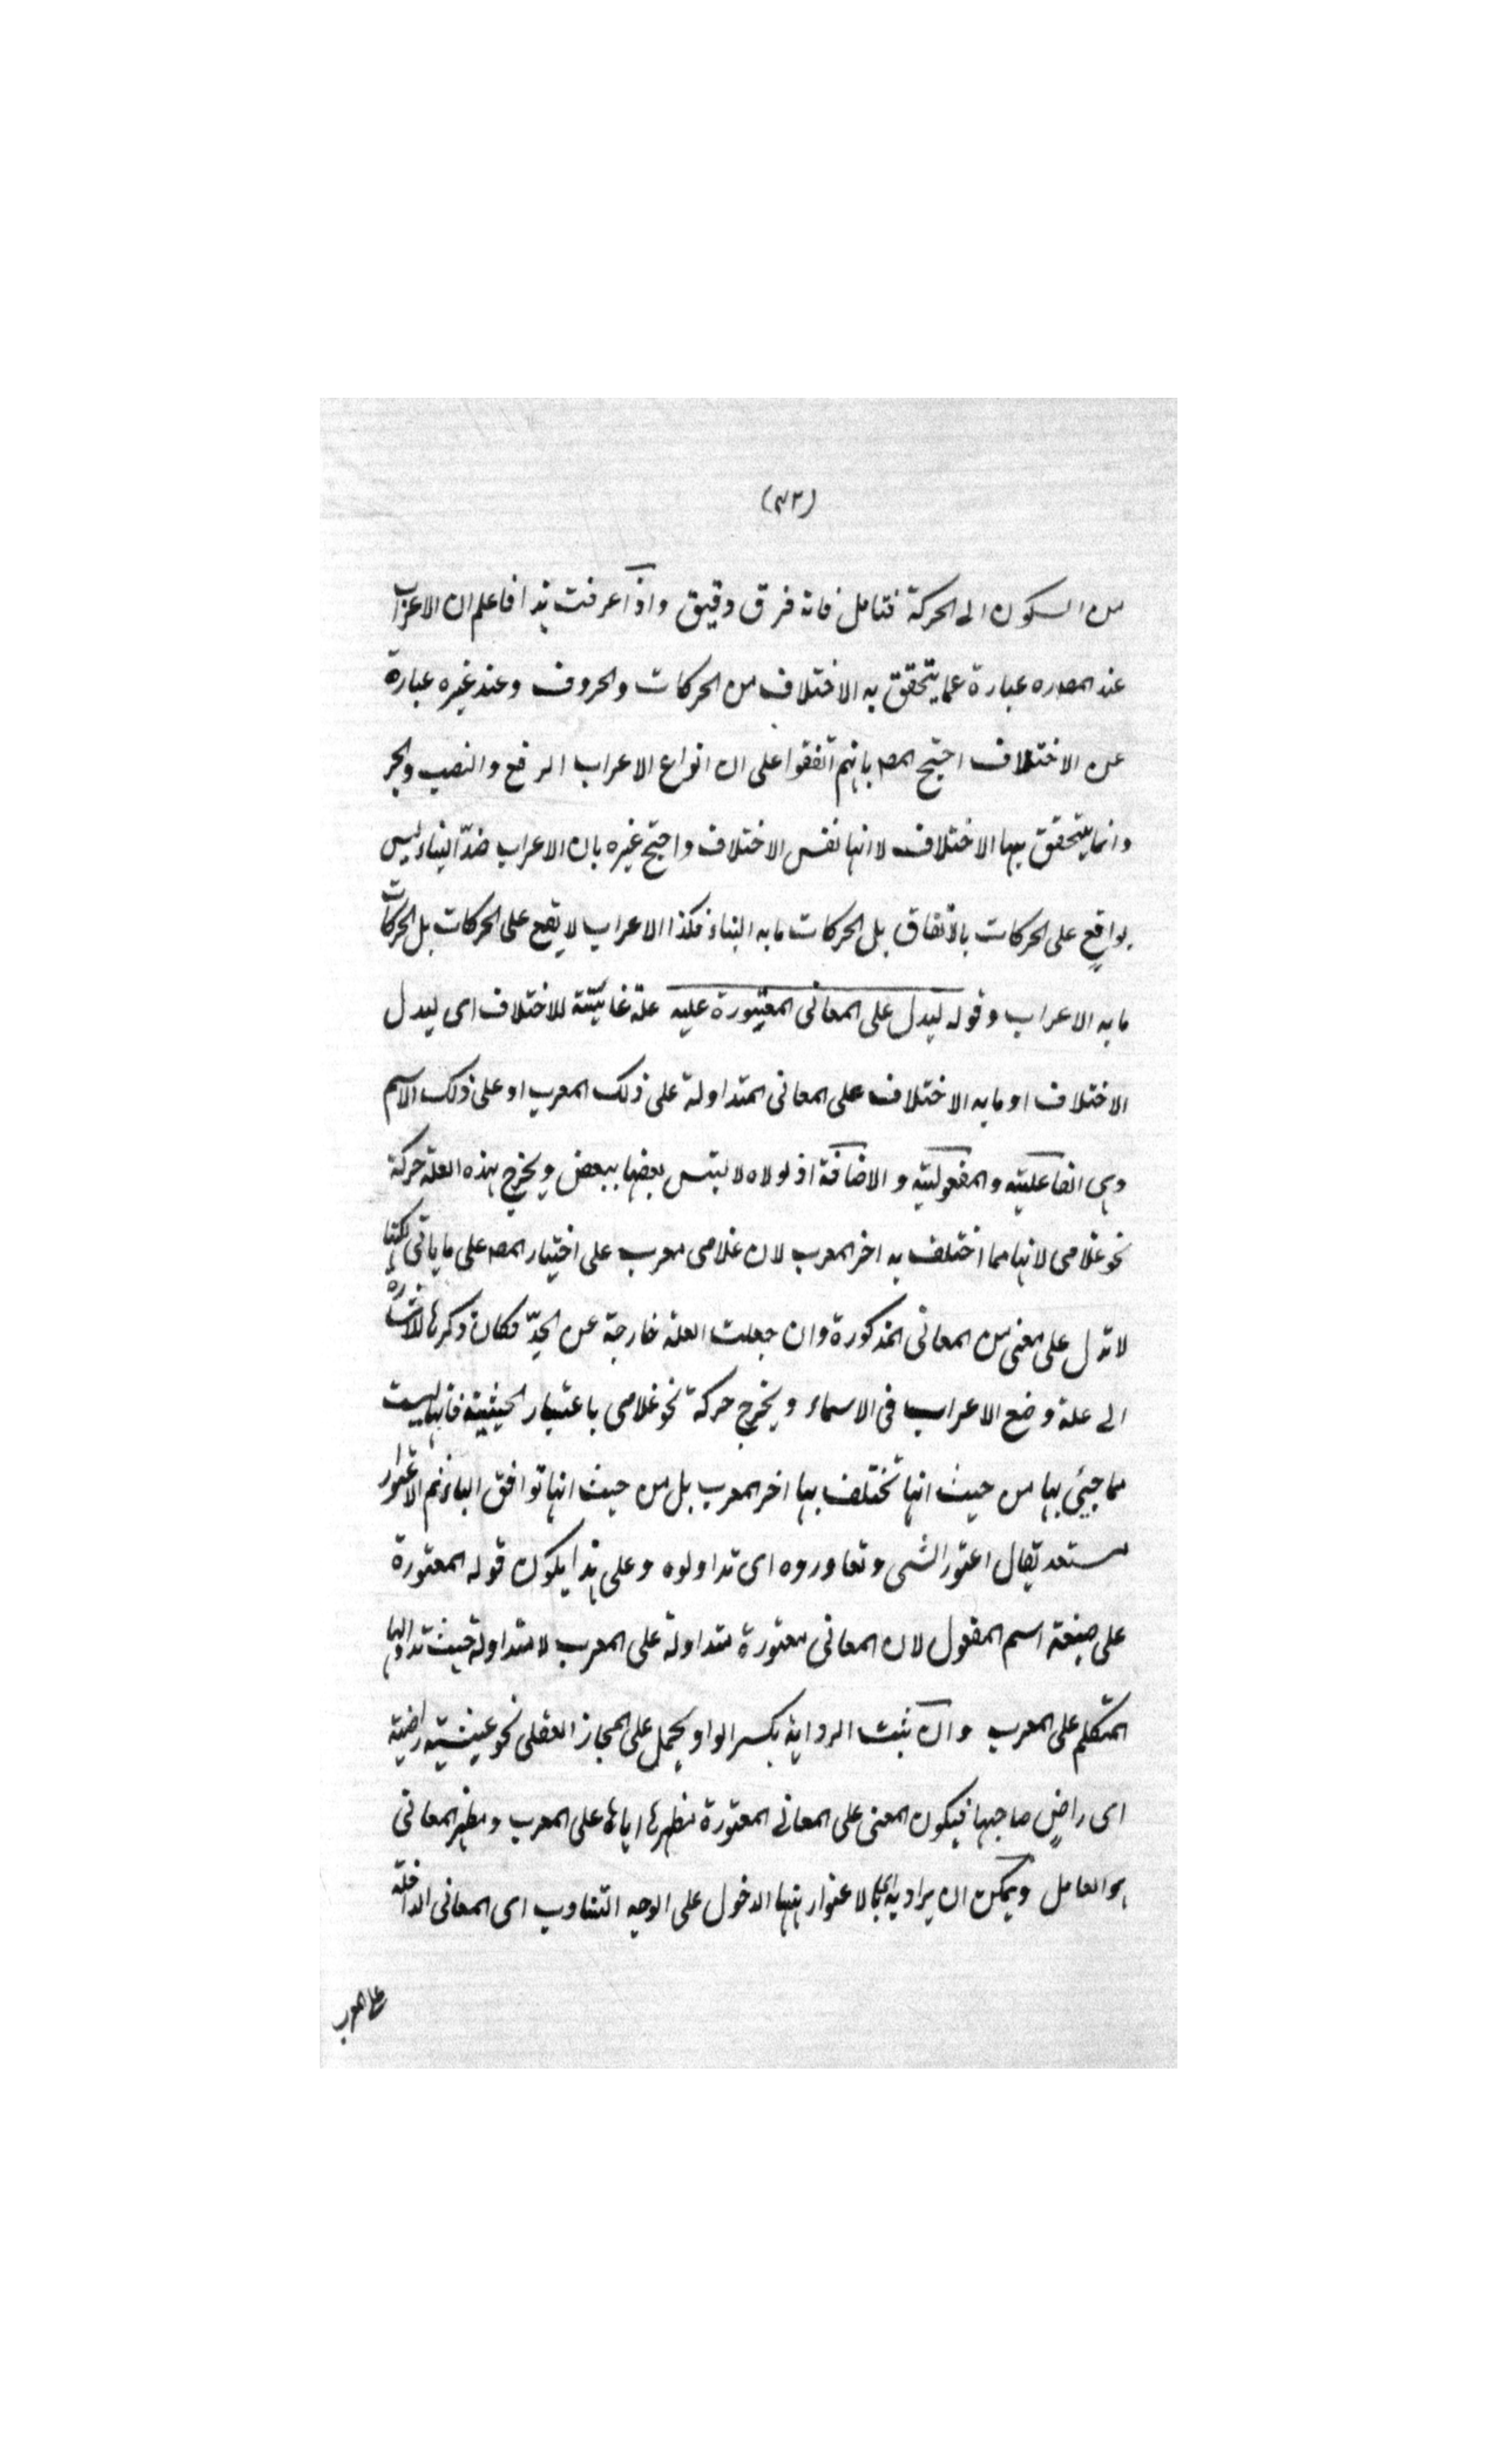 (٣٢)
من السكون الى الحركة فتامل فانه فرق دقيق واذا عرفت هذا فاعلم ان الاعراب
عند المصـ ره عبارة عما يتحقق به الاختلاف من الحركات والحروف وعند غيره عبارة
عن الاختلاف احتج المصـ بانهم اتفقوا على ان انواع الاعراب الرفع والنصب والجر
وانما يتحقق بها الاختلاف لا انها نفس الاختلاف واحتج غيره بان الاعراب ضدّ البناء ليس
بواقعٍ على الحركات بالاتفاق بل الحركات ما به البناء فكذا الاعراب لا يقع على الحركات بل الحركات
ما به الاعراب وقوله ليدل على المعانى المعتورة عليه علة غائيّة للاختلاف اى ليدل
الاختلاف او ما به الاختلاف على المعانى المتداولة على ذلك المعرب او على ذلك الاسم
وهى الفاعلية والمفعولية والاضافة اذ لولاه لالتبس بعضها ببعض ويخرج بهذه العلة حركة
نحو غلامى لانها مما اختلف به اخر المعرب لان غلامى معرب على اختيار المصـ على ما ياتى لكنها
لا تدل على معنى من المعانى المذكورة وان جعلت العلة خارجة عن الحدّ فكان ذكرها للاشارة
الى علة وضع الاعراب فى الاسماء ويخرج حركة نحو غلامى باعتبار الحيثية فانها ليست
مما جيئ بها من حيث انها تختلف بها اخر المعرب بل من حيث انها توافق الياء ثم الاعتوار
متعد يقال اعتور الشى وتعاوروه اى تداولوه وعلى هذا يكون قوله المعتورة
على صيغة اسم المفعول لان المعانى معتورة متداولة على المعرب لا متداولة حيث تداولها
المتكلم على المعرب وان ثبت الرواية بكسر الواو يحمل على المجاز العقلى نحو عيشة راضية
اى راضٍ صاحبها فيكون المعنى على المعانى المعتورة مظهرها اياها على المعرب ومظهر المعانى
هو العامل ويمكن ان يراد بالاعتوار ههنا الدخول على الوجه التناوب اى المعانى الداخلة
على المعرب